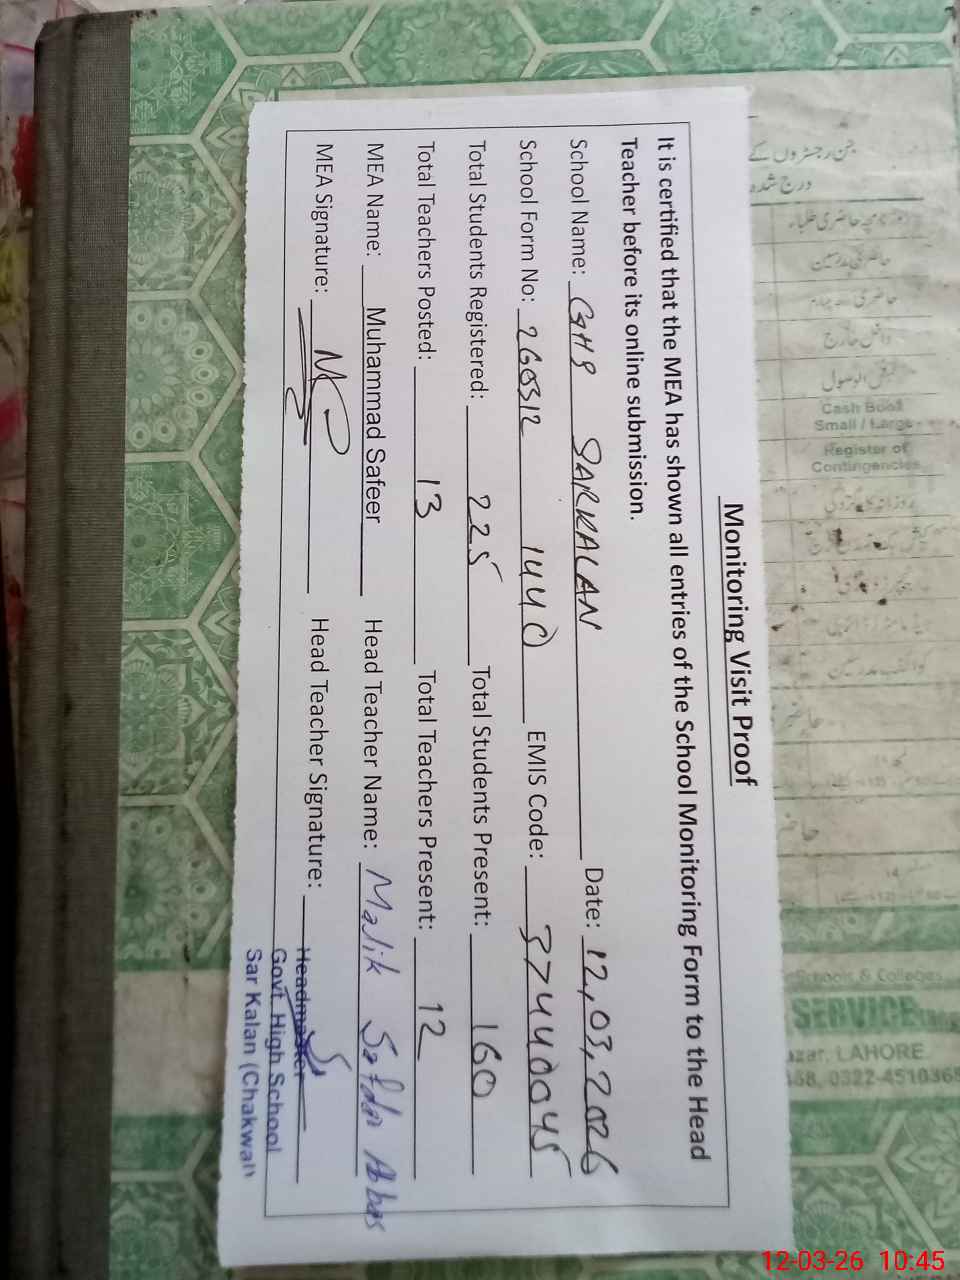 Monitoring Visit Proof
It is certified that the MEA has shown all entries of the School Monitoring Form to the Head
Teacher before its online submission.
School Name: GHS SARKALAN Date: 12,03,2026
School Form No: 260312 1440 EMIS Code: 37440045
Total Students Registered: 225 Total Students Present: 160
Total Teachers Posted: 13 Total Teachers Present: 12
MEA Name: Muhammad Safeer Head Teacher Name: Malik Safdar Abbas
MEA Signature: Head Teacher Signature:
Headmaster
Govt High School
Sar Kalan (Chakwal)
جن رجسٹروں کے
درج شدہ
حاضری مدرسین
داخل خارج
قبض الوصول
Cash Book
Small / Large
Register of
Contingencies
Schools & Colleges
SERVICE
LAHORE
0322-4510365
12-03-26 10:45